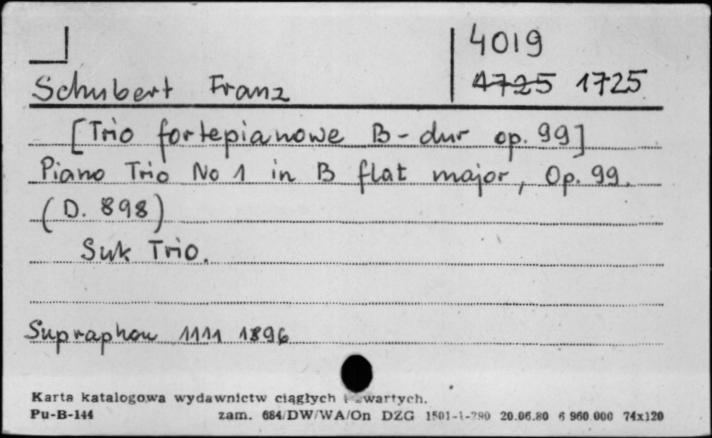 4019
Schubert Franz 4725 1725
[Trio fortepianowe B-dur op. 99]
Piano Trio No 1 in B flat major, Op. 99.
(D. 898)
Suk Trio.
Supraphon 1111 1896
Karta katalogowa wydawnictw ciągłych i zwartych.
Pu-B-144 zam. 684/DW/WA/On DZG 1501-1-790 20.06.80 6 960 000 74x120